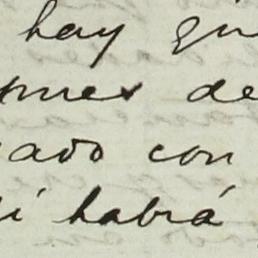 hay qu
pues de
ado con
í habrá